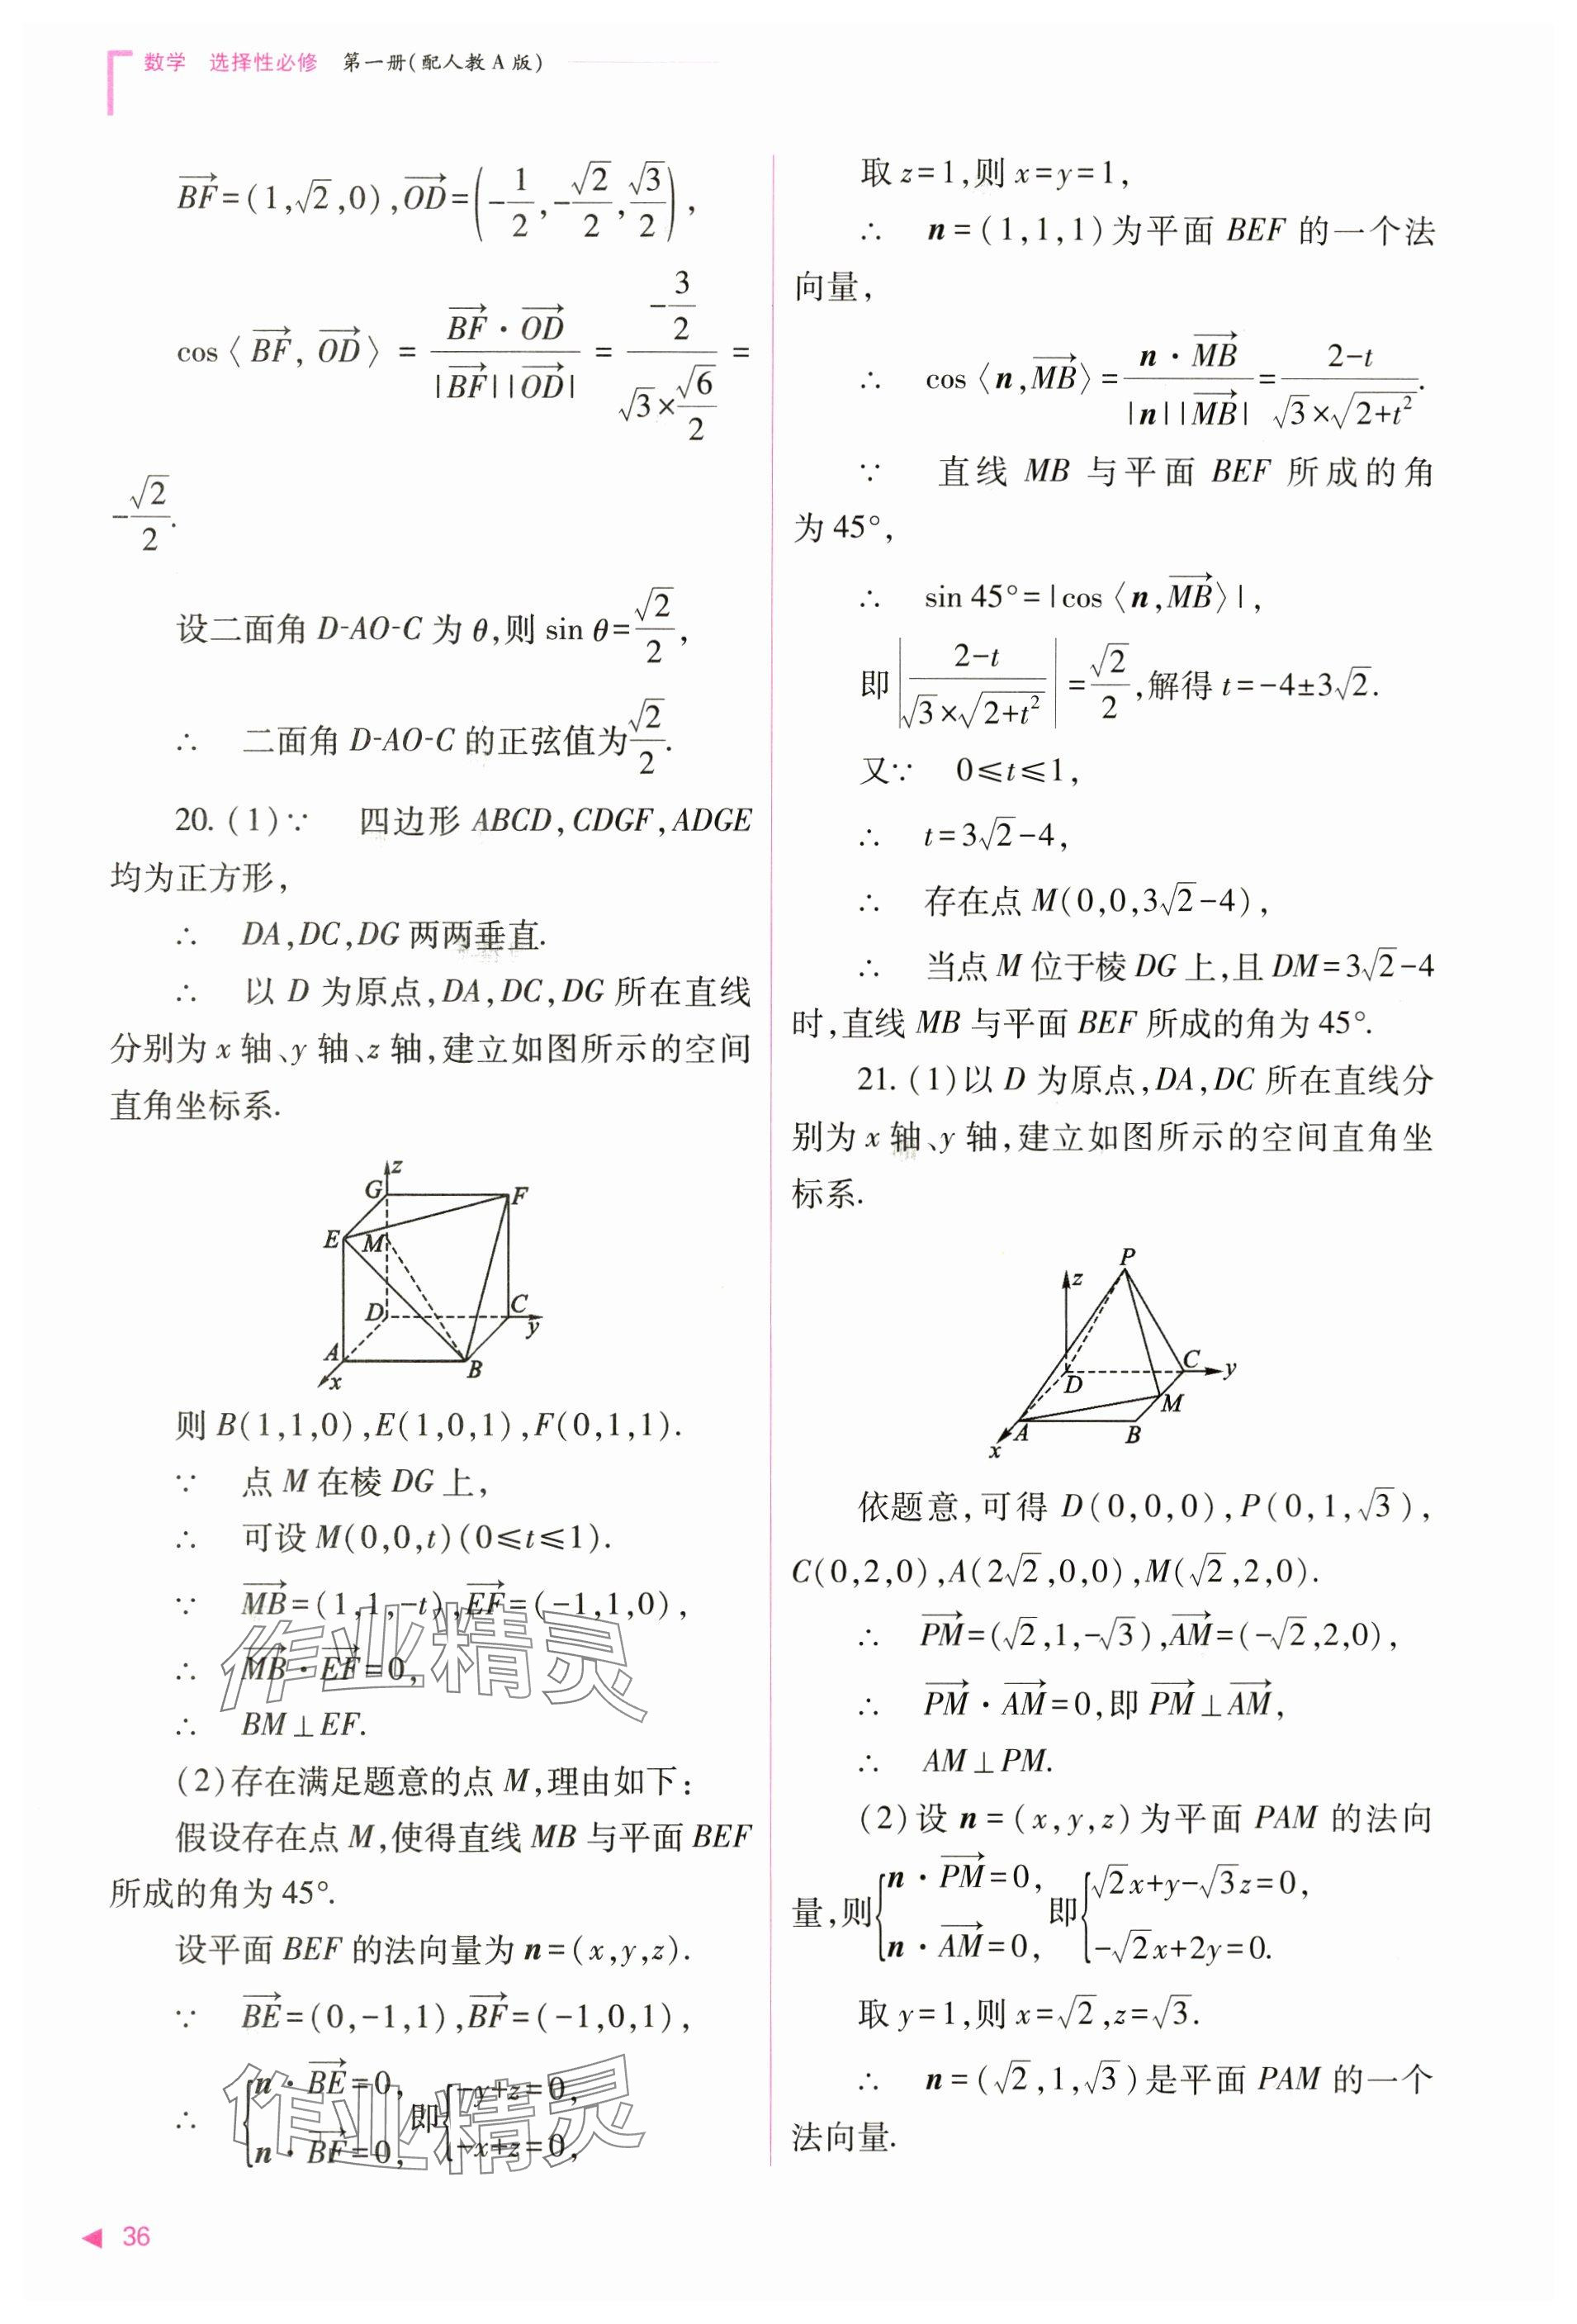 数学 选择性必修 第一册(配人教 A 版)
$\overrightarrow{BF}=(1,\sqrt{2},0),\overrightarrow{OD}=\left(-\frac{1}{2},-\frac{\sqrt{2}}{2},\frac{\sqrt{3}}{2}\right)$,
$\cos\langle\overrightarrow{BF},\overrightarrow{OD}\rangle=\frac{\overrightarrow{BF}\cdot\overrightarrow{OD}}{|\overrightarrow{BF}||\overrightarrow{OD}|}=\frac{-\frac{3}{2}}{\sqrt{3}\times\frac{\sqrt{6}}{2}}=$
$-\frac{\sqrt{2}}{2}$.
设二面角 D-AO-C 为 θ,则 $\sin θ=\frac{\sqrt{2}}{2}$,
∴ 二面角 D-AO-C 的正弦值为$\frac{\sqrt{2}}{2}$.
20. (1)∵ 四边形 ABCD,CDGF,ADGE
均为正方形,
∴ DA,DC,DG 两两垂直.
∴ 以 D 为原点,DA,DC,DG 所在直线
分别为 x 轴、y 轴、z 轴,建立如图所示的空间
直角坐标系.
z
G
F
E
M
D
C
y
A
B
x
则 B(1,1,0),E(1,0,1),F(0,1,1).
∵ 点 M 在棱 DG 上,
∴ 可设 M(0,0,t)(0≤t≤1).
∵ $\overrightarrow{MB}=(1,1,-t),\overrightarrow{EF}=(-1,1,0)$,
∴ $\overrightarrow{MB}\cdot\overrightarrow{EF}=0$,
作业精灵
∴ BM⊥EF.
(2)存在满足题意的点 M,理由如下:
假设存在点 M,使得直线 MB 与平面 BEF
所成的角为 45°.
设平面 BEF 的法向量为 n=(x,y,z).
∵ $\overrightarrow{BE}=(0,-1,1),\overrightarrow{BF}=(-1,0,1)$,
∴ $\begin{cases}n\cdot\overrightarrow{BE}=0,\\n\cdot\overrightarrow{BF}=0,\end{cases}$即$\begin{cases}-y+z=0,\\-x+z=0,\end{cases}$
作业精灵
取 z=1,则 x=y=1,
∴ n=(1,1,1)为平面 BEF 的一个法
向量,
∴ $\cos\langle n,\overrightarrow{MB}\rangle=\frac{n\cdot\overrightarrow{MB}}{|n||\overrightarrow{MB}|}=\frac{2-t}{\sqrt{3}\times\sqrt{2+t^2}}$.
∵ 直线 MB 与平面 BEF 所成的角
为 45°,
∴ $\sin 45°=|\cos\langle n,\overrightarrow{MB}\rangle|$,
即$\left|\frac{2-t}{\sqrt{3}\times\sqrt{2+t^2}}\right|=\frac{\sqrt{2}}{2}$,解得 $t=-4±3\sqrt{2}$.
又∵ 0≤t≤1,
∴ $t=3\sqrt{2}-4$,
∴ 存在点 $M(0,0,3\sqrt{2}-4)$,
∴ 当点 M 位于棱 DG 上,且 $DM=3\sqrt{2}-4$
时,直线 MB 与平面 BEF 所成的角为 45°.
21. (1)以 D 为原点,DA,DC 所在直线分
别为 x 轴、y 轴,建立如图所示的空间直角坐
标系.
P
z
C
y
D
M
A
B
x
依题意,可得 $D(0,0,0),P(0,1,\sqrt{3})$,
$C(0,2,0),A(2\sqrt{2},0,0),M(\sqrt{2},2,0)$.
∴ $\overrightarrow{PM}=(\sqrt{2},1,-\sqrt{3}),\overrightarrow{AM}=(-\sqrt{2},2,0)$,
∴ $\overrightarrow{PM}\cdot\overrightarrow{AM}=0$,即 $\overrightarrow{PM}⊥\overrightarrow{AM}$,
∴ AM⊥PM.
(2)设 n=(x,y,z)为平面 PAM 的法向
量,则$\begin{cases}n\cdot\overrightarrow{PM}=0,\\n\cdot\overrightarrow{AM}=0,\end{cases}$即$\begin{cases}\sqrt{2}x+y-\sqrt{3}z=0,\\-\sqrt{2}x+2y=0.\end{cases}$
取 y=1,则 $x=\sqrt{2},z=\sqrt{3}$.
∴ $n=(\sqrt{2},1,\sqrt{3})$是平面 PAM 的一个
法向量.
36